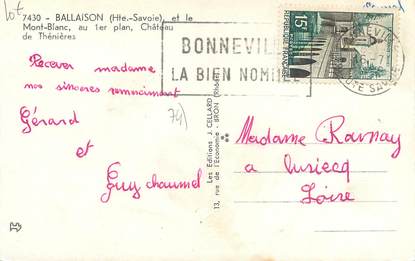 Lot
7430 - BALLAISON (Hte.-Savoie), et le
Mont-Blanc, au 1er plan, Château
de Thénières
BONNEVILLE
LA BIEN NOMMÉE
15F
Recever madame
nos sinceres remerciment
Gérard
et
Guy chaumel
74)
Les Editions J. CELLARD
13, rue de l'Economie - BRON (Rhône)
Madame Ravnay
a Lusiecq
Loire